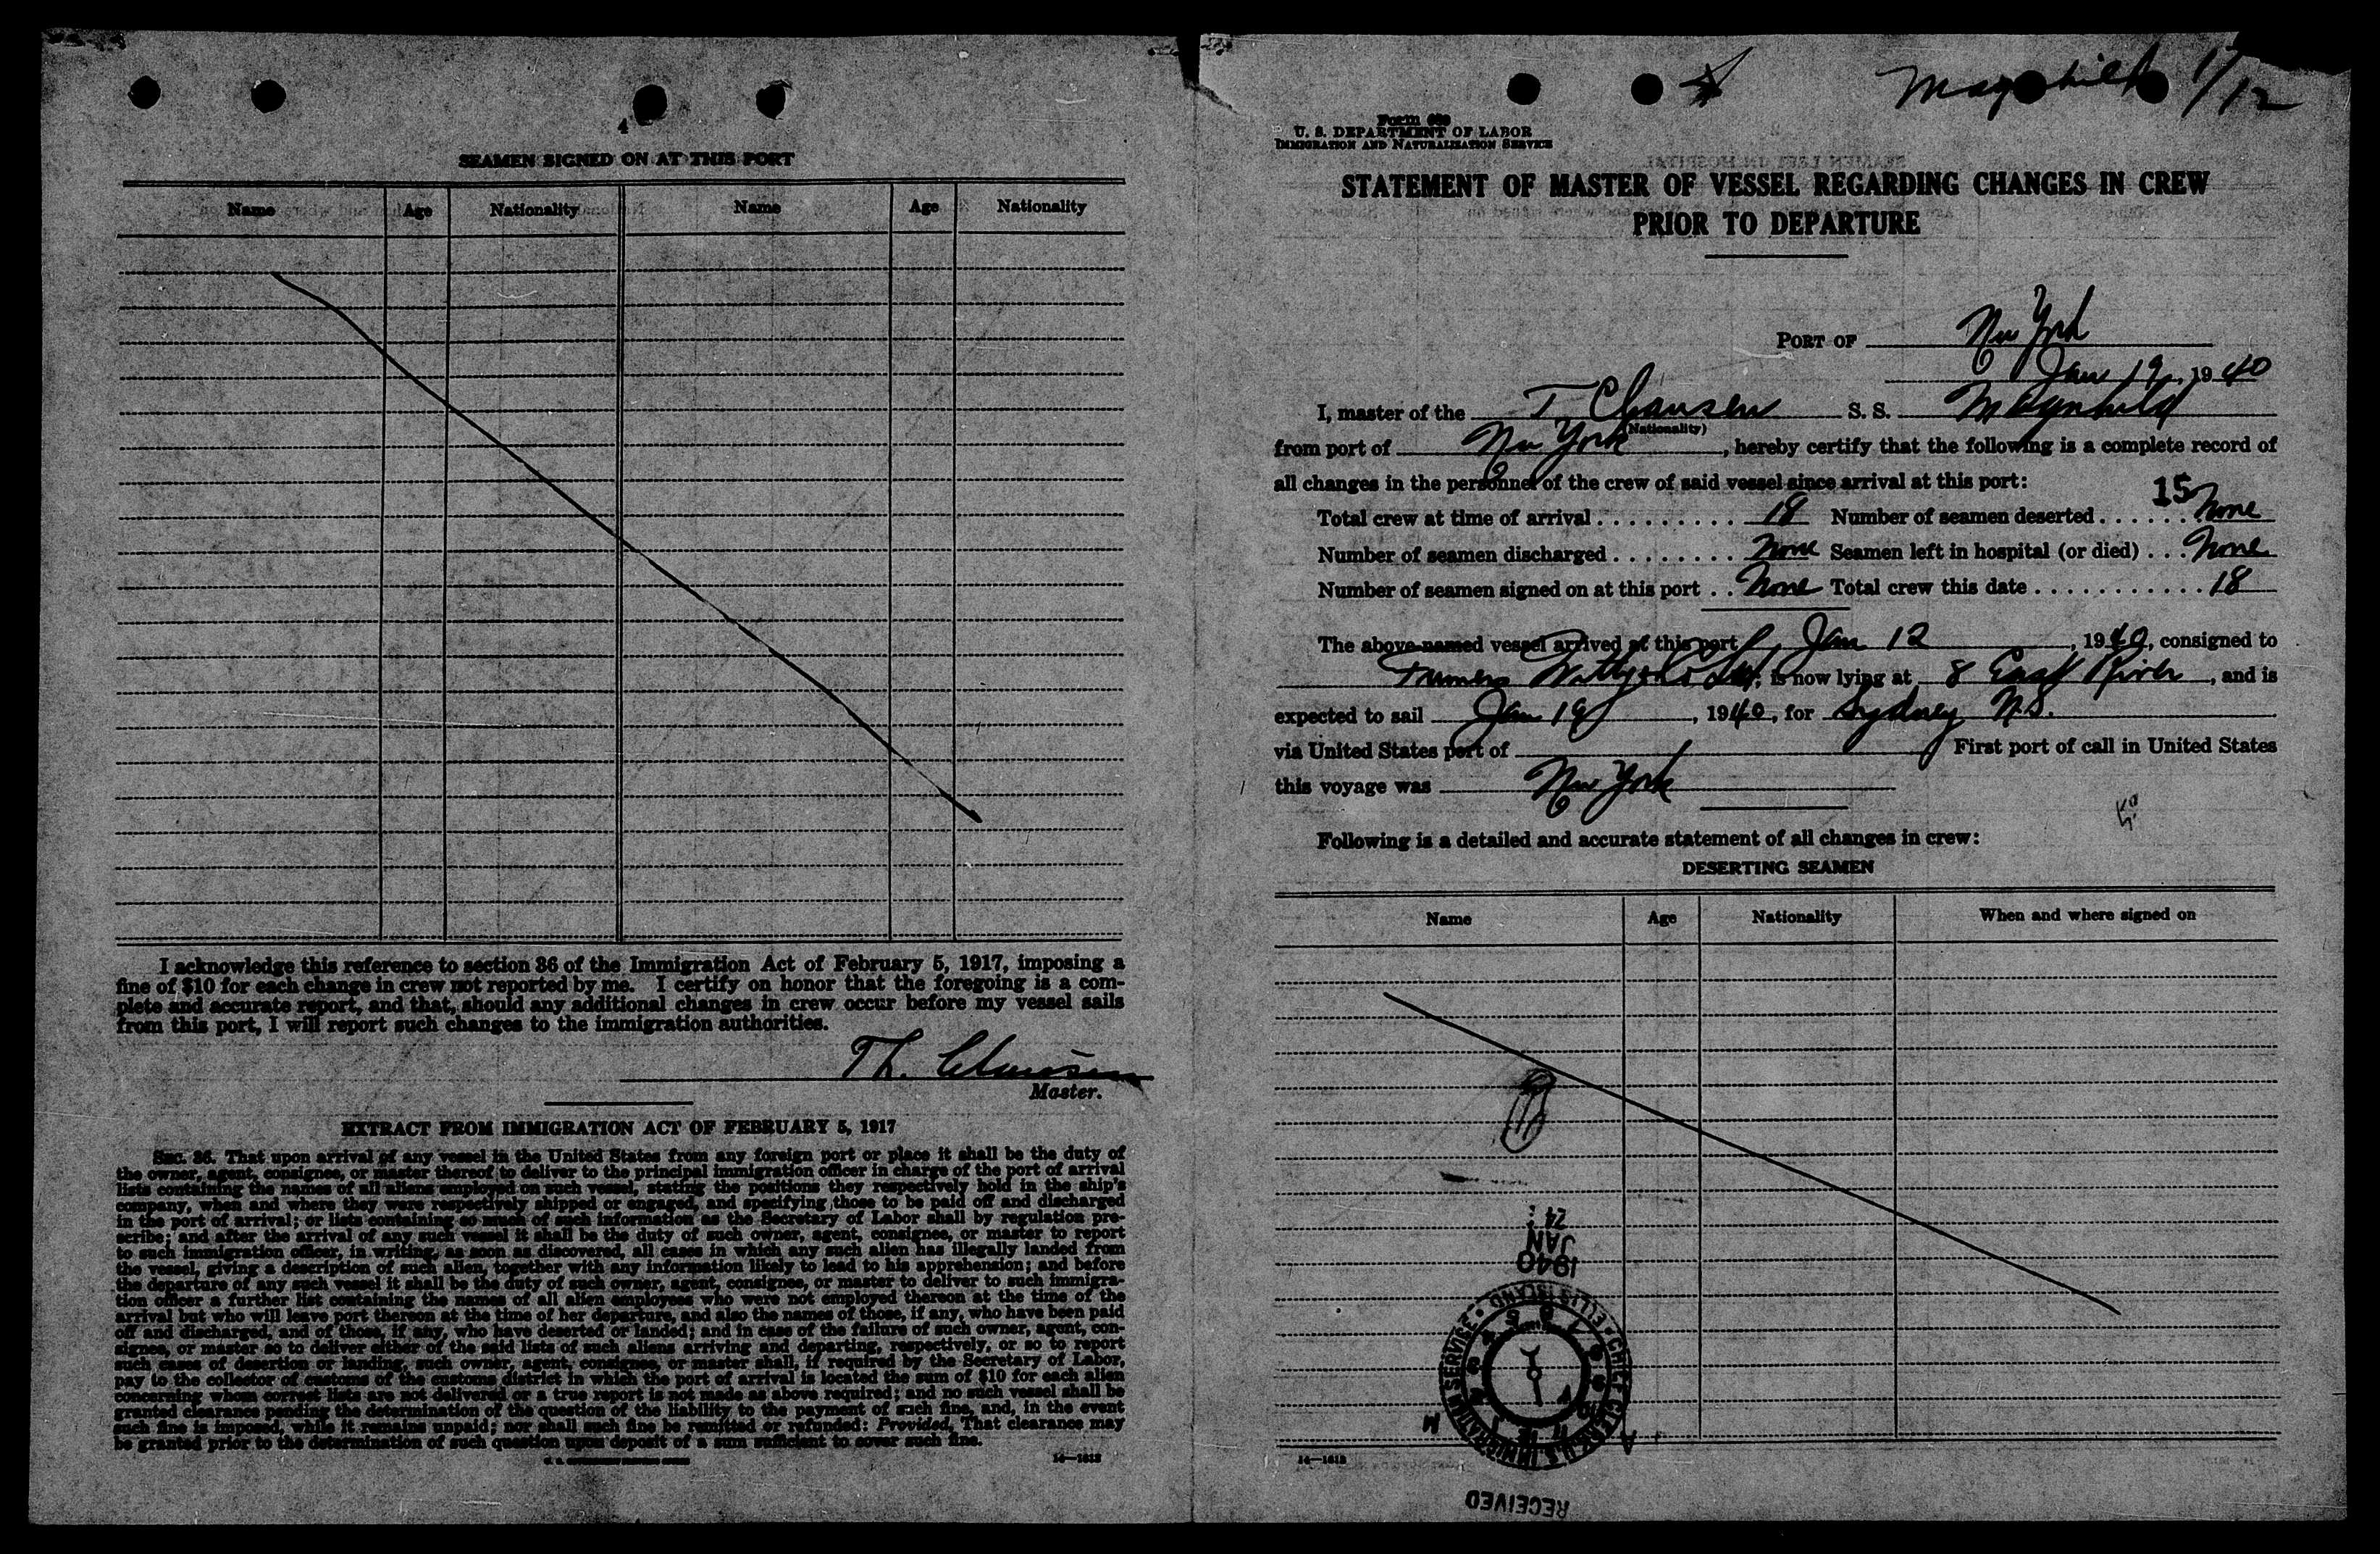 4
SEAMEN SIGNED ON AT THIS PORT
Name Age Nationality Name Age Nationality
I acknowledge this reference to section 36 of the Immigration Act of February 5, 1917, imposing a
fine of $10 for each change in crew not reported by me. I certify on honor that the foregoing is a com-
plete and accurate report, and that, should any additional changes in crew occur before my vessel sails
from this port, I will report such changes to the immigration authorities.
Th. Clausen
Master.
EXTRACT FROM IMMIGRATION ACT OF FEBRUARY 5, 1917
SEC. 36. That upon arrival of any vessel in the United States from any foreign port or place it shall be the duty of
the owner, agent, consignee, or master thereof to deliver to the principal immigration officer in charge of the port of arrival
lists containing the names of all aliens employed on such vessel, stating the positions they respectively hold in the ship's
company, when and where they were respectively shipped or engaged, and specifying those to be paid off and discharged
in the port of arrival; or lists containing so much of such information as the Secretary of Labor shall by regulation pre-
scribe; and after the arrival of any such vessel it shall be the duty of such owner, agent, consignee, or master to report
to such immigration officer, in writing, as soon as discovered, all cases in which any such alien has illegally landed from
the vessel, giving a description of such alien, together with any information likely to lead to his apprehension; and before
the departure of any such vessel it shall be the duty of such owner, agent, consignee, or master to deliver to such immigra-
tion officer a further list containing the names of all alien employees who were not employed thereon at the time of the
arrival but who will leave port thereon at the time of her departure, and also the names of those, if any, who have been paid
off and discharged, and of those, if any, who have deserted or landed; and in case of the failure of such owner, agent, con-
signee, or master so to deliver either of the said lists of such aliens arriving and departing, respectively, or so to report
such cases of desertion or landing, such owner, agent, consignee, or master shall, if required by the Secretary of Labor,
pay to the collector of customs of the customs district in which the port of arrival is located the sum of $10 for each alien
concerning whom correct lists are not delivered or a true report is not made as above required; and no such vessel shall be
granted clearance pending the determination of the question of the liability to the payment of such fine, and, in the event
such fine is imposed, while it remains unpaid; nor shall such fine be remitted or refunded: Provided, That clearance may
be granted prior to the determination of such question upon deposit of a sum sufficient to cover such fine.
14—1613
Magnhild 1/12
Form 689
U. S. DEPARTMENT OF LABOR
IMMIGRATION AND NATURALIZATION SERVICE
STATEMENT OF MASTER OF VESSEL REGARDING CHANGES IN CREW
PRIOR TO DEPARTURE
PORT OF New York
Jan 19, 1940
I, master of the T. Clausen S. S. Magnhild
(Nationality)
from port of New York, hereby certify that the following is a complete record of
all changes in the personnel of the crew of said vessel since arrival at this port:
15
Total crew at time of arrival 18 Number of seamen deserted None
Number of seamen discharged None Seamen left in hospital (or died) None
Number of seamen signed on at this port None Total crew this date 18
The above-named vessel arrived at this port Jan 12, 1940, consigned to
is now lying at 8 East River, and is
expected to sail Jan 19, 1940, for Sydney N.S.
via United States port of First port of call in United States
this voyage was New York
Following is a detailed and accurate statement of all changes in crew:
DESERTING SEAMEN
Name Age Nationality When and where signed on
24
JAN
1940
CHIEF CLERK U.S. IMMIGRATION SERVICE • ELLIS ISLAND
14—1613
RECEIVED